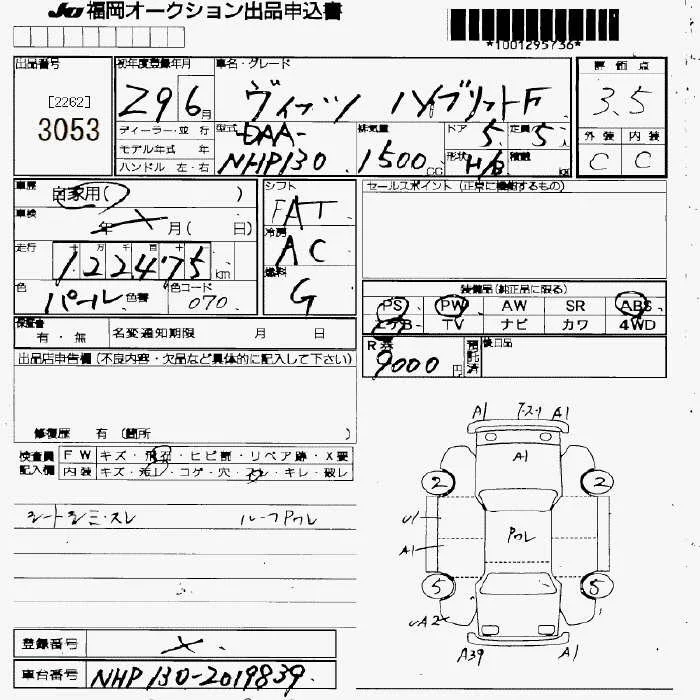 JU 福岡オークション出品申込書
*1001295736*
出品番号 初年度登録年月 車名・グレード 評価点
[2262]
3053 Z9 6月 ヴィッツ ハイブリットF 3.5
ディーラー・並 行 型式 DAA- 排気量 ドア 5 定員 5 外装 内装
モデル年式 年 NHP130 1500cc 形状 H/B 積載 kg C C
ハンドル 左・右
車歴 自家用( ) シフト FAT セールスポイント (正常に機能するもの)
車検 年 メ 月( 日) 冷房 AC
走行 十 万 千 百 十
122475km 燃料 G
色 パール 色替 色コード 070
装備品(純正品に限る)
PS PW AW SR ABS
エアB TV ナビ カワ 4WD
保証書 有・無 名変通知期限 月 日 R券 9000円 預託済 後日品
出品店申告欄 (不良内容・欠品など具体的に記入して下さい)
修復歴 有 (箇所 )
検査員 FW キズ・飛石・ヒビ割・リペア跡・X要
記入欄 内装 キズ・汚レ・コゲ・穴・スレ・キレ・破レ
シートシミ・スレ ルーフPワレ
A1 A1
A1
2 2
U1
A1
Pワレ
5 5
UA2
A39 A1
登録番号 メ
車台番号 NHP130-2019839